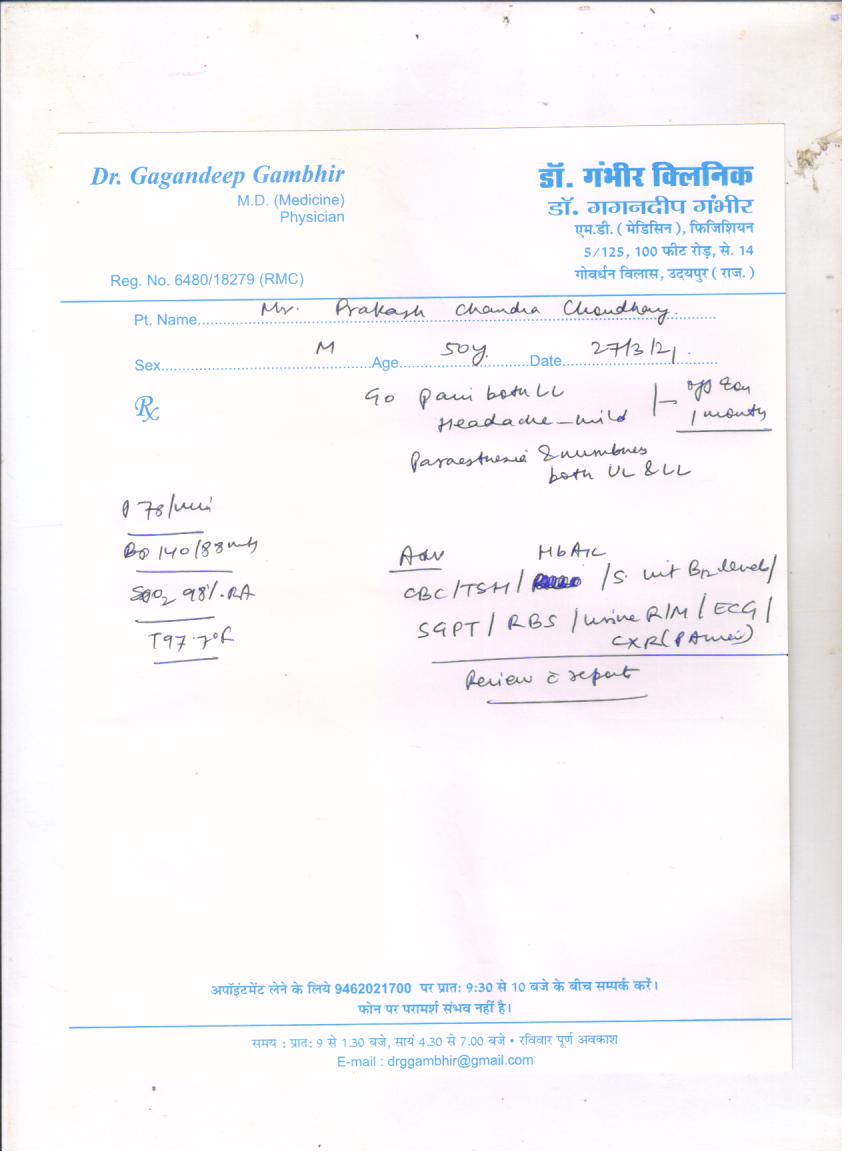 Dr. Gagandeep Gambhir
M.D. (Medicine)
Physician
Reg. No. 6480/18279 (RMC)
डॉ. गंभीर क्लिनिक
डॉ. गगनदीप गंभीर
एम.डी. ( मेडिसिन ), फिजिशियन
5/125, 100 फीट रोड़, से. 14
गोवर्धन विलास, उदयपुर ( राज. )
Pt. Name Mr. Prakash Chandra Choudhary.
Sex M Age 50y. Date 27/3/21
Rx
C/o pain both LL
Headache - mild
1 month
Paraesthesia & numbness
both UL & LL
P 78/min
BP 140/88
SpO2 98%. RA
T 97.7°F
Adv HbA1c
CBC/TSH/ /S. vit B12 level/
SGPT / RBS / urine R/M / ECG /
CXR (PA view)
Review c̄ report
अपॉइंटमेंट लेने के लिये 9462021700 पर प्रातः 9:30 से 10 बजे के बीच सम्पर्क करें।
फोन पर परामर्श संभव नहीं है।
समय : प्रातः 9 से 1.30 बजे, सायं 4.30 से 7.00 बजे • रविवार पूर्ण अवकाश
E-mail : drggambhir@gmail.com